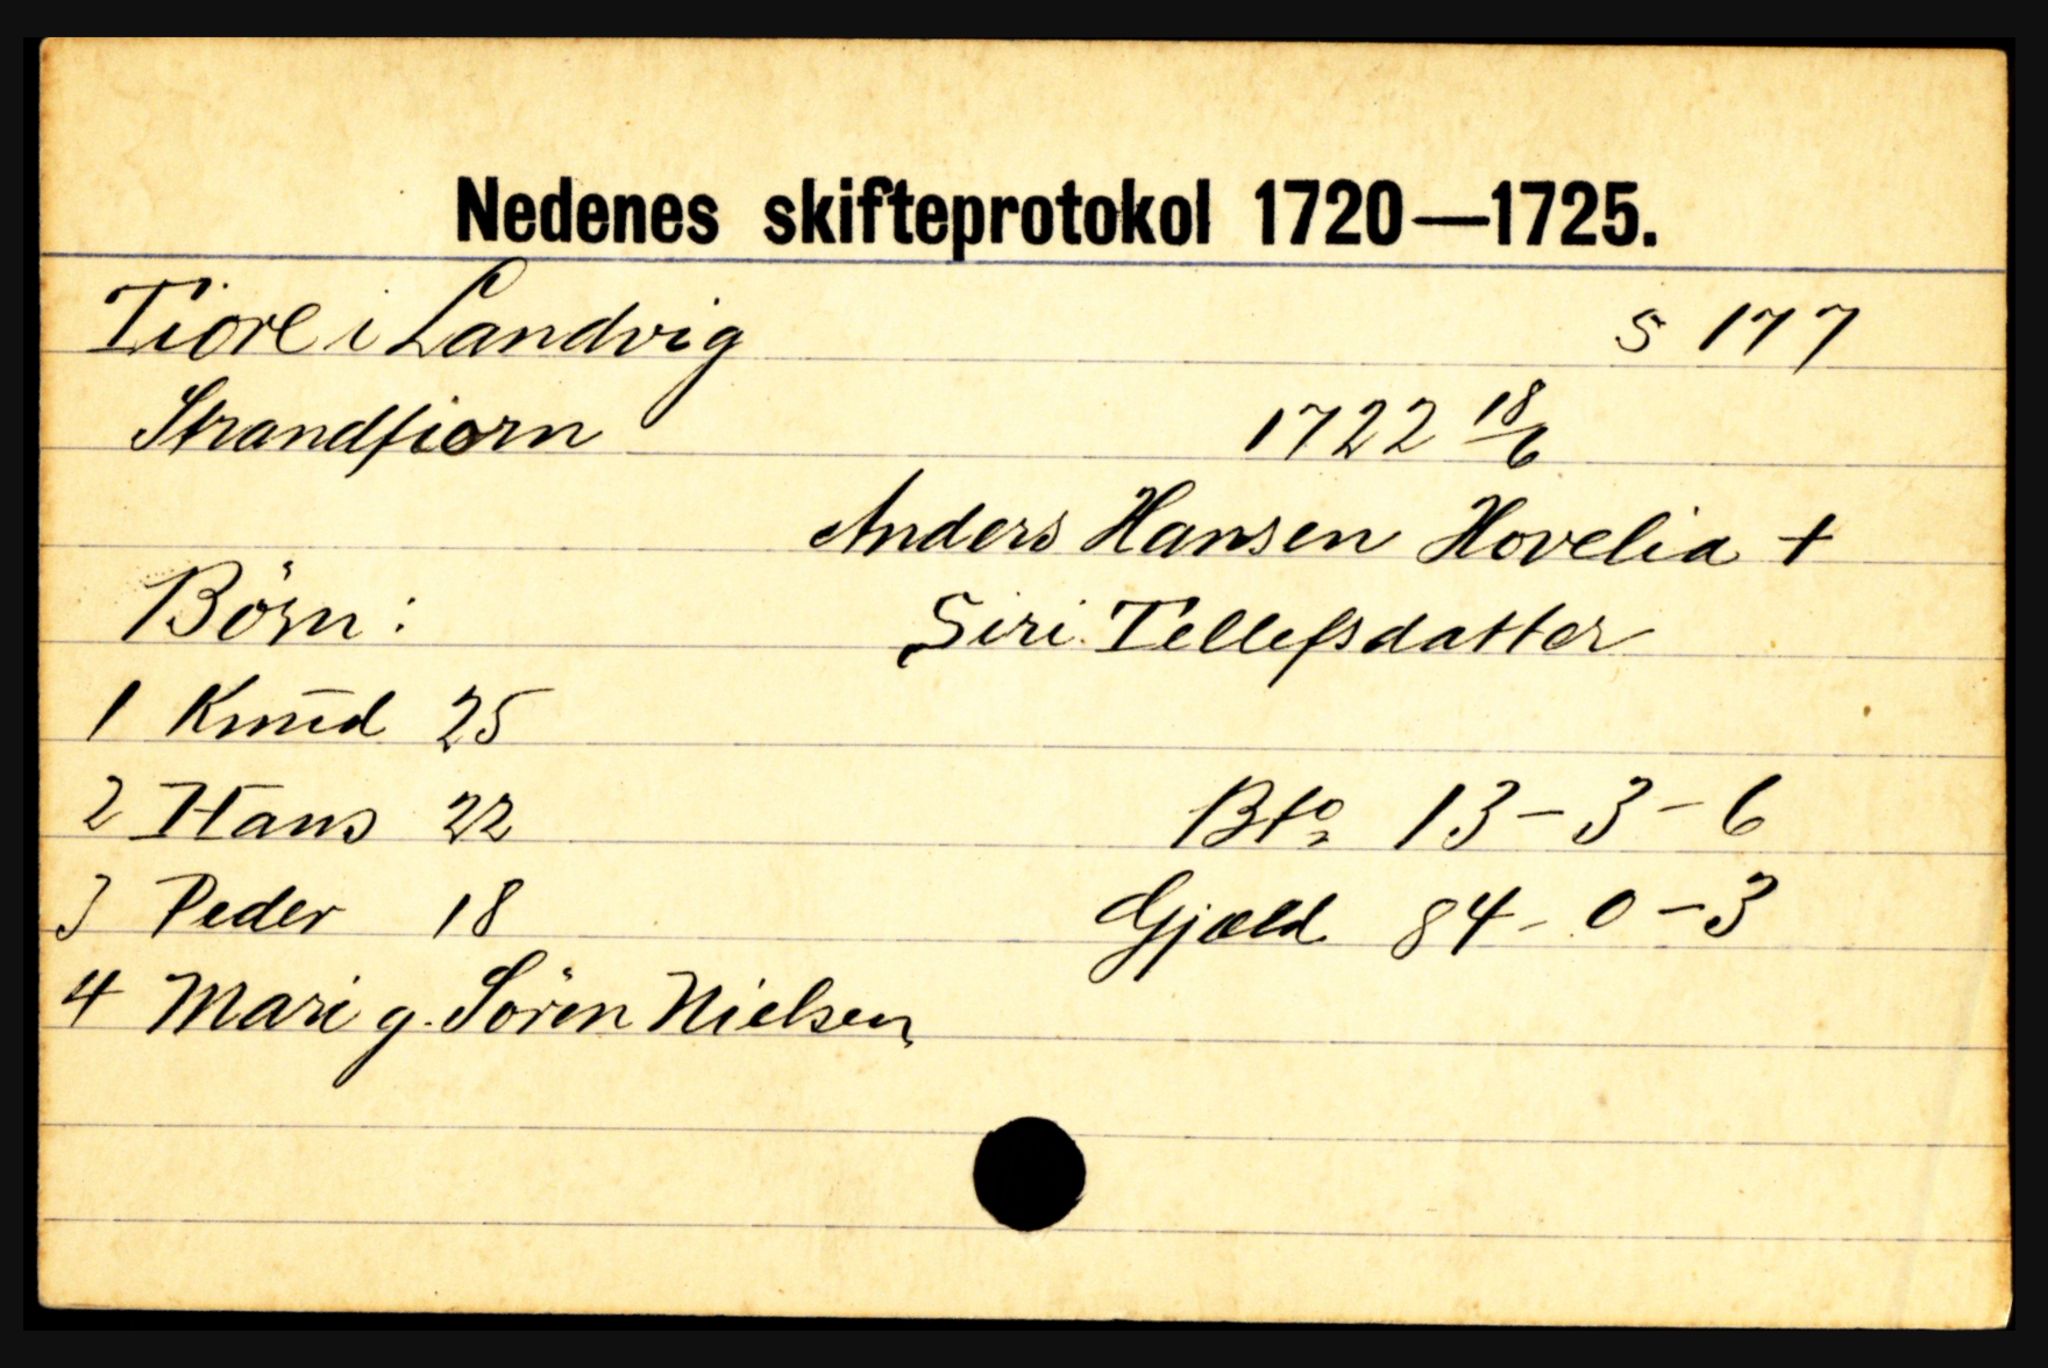 Nedenes skifteprotokol 1720—1725.
Tiörl i Landvig S 177
Strandfiorn 1722 18/6
Anders Hansen Hovelia +
Börn: Siri Tellefsdatter
1 Knud 25
2 Hans 22 Bto 13-3-6
3 Peder 18 Gjæld 84-0-3
4 Mari g. Sören Nielsen